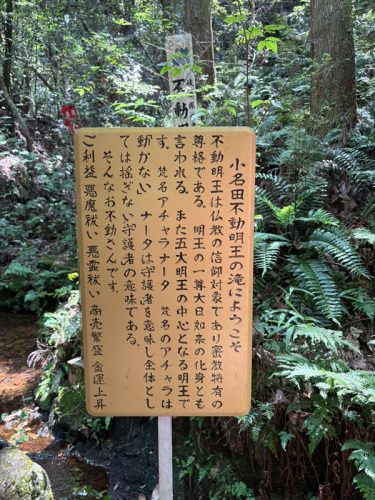 小名田不動明王の滝にようこそ
不動明王は仏教の信仰対象であり密教特有の
尊格である。明王の一尊大日如来の化身とも
言われる。また五大明王の中心となる明王で
す。梵名アチャラナータ 梵名のアチャラは
動かない ナータは守護者を意味し全体とし
ては揺ぎない守護者の意味である。
そんなお不動さんです。
ご利益 悪魔祓い 悪霊祓い 商売繁盛 金運上昇
不動